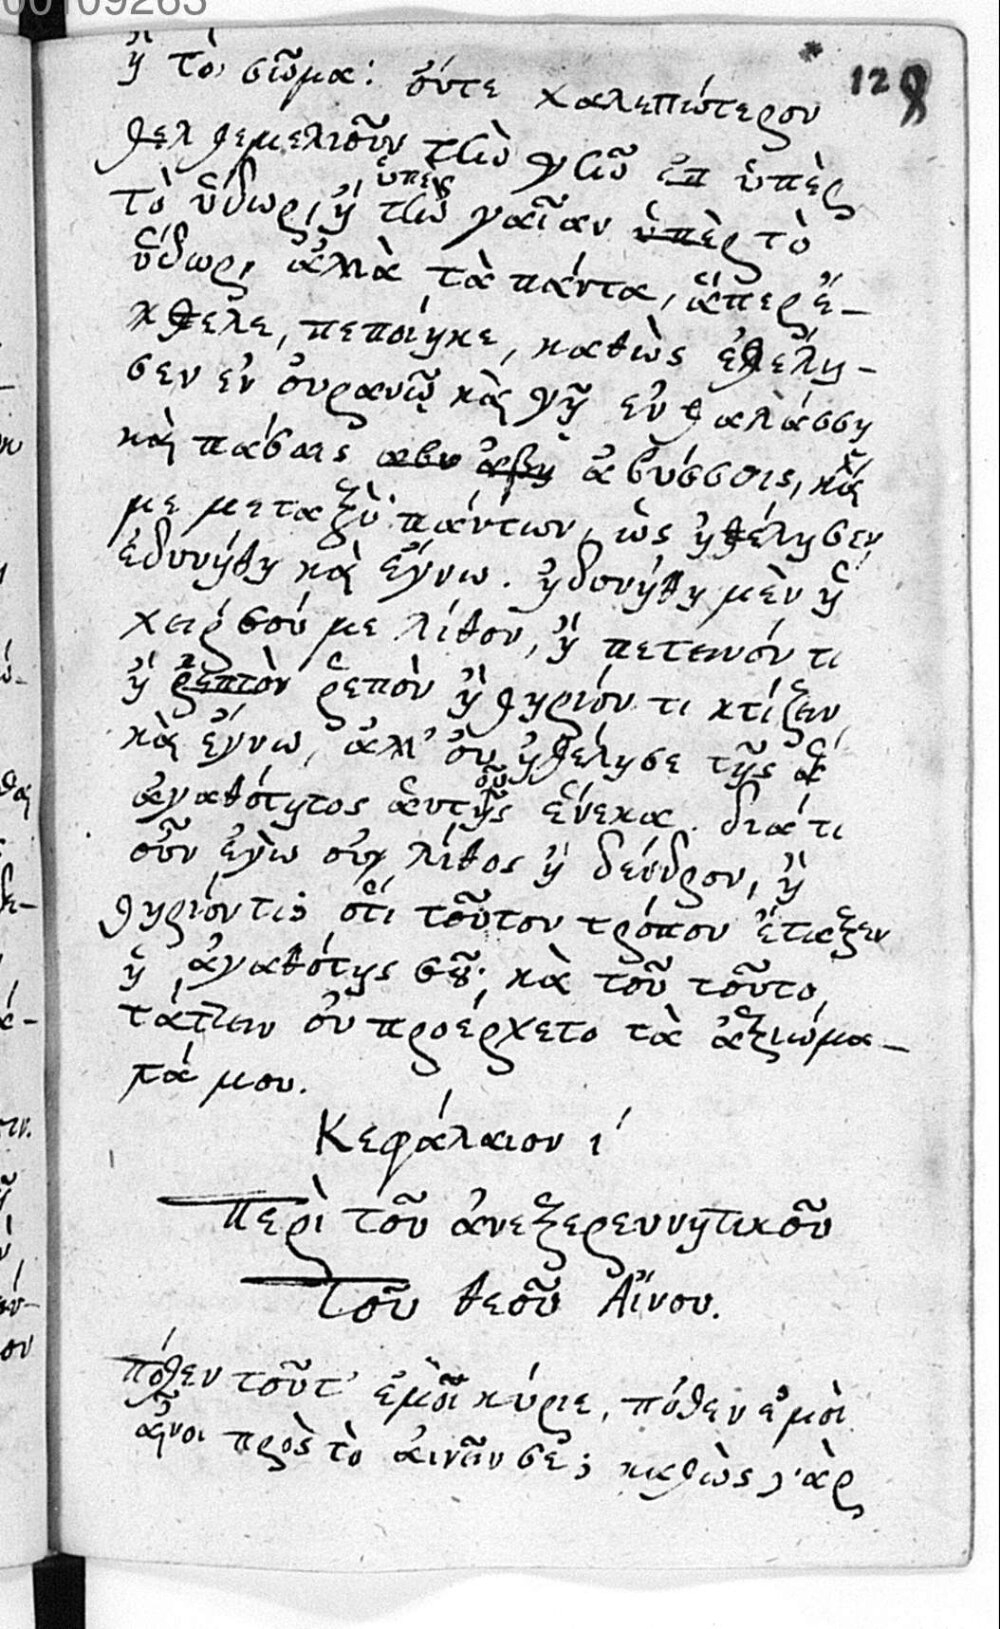 00109263
128
ἢ τὸ σῶμα: οὔτε χαλεπώτερον
θελ θεμελιοῦν τὴν γῆν ἐπ ὑπὲρ
τὸ ὕδωρ, ἢ τὴν ὑπὲρ γαῖαν ὑπὲρ τὸ
ὕδωρ, ἀλλὰ τὰ πάντα, ἅπερ ἔ-
κθελε, πεποίηκε, καθὼς ἐθέλη-
σεν ἐν οὐρανῷ καὶ γῇ ἐν θαλάσσῃ
καὶ πάσαις αβυ ἀβη ἀβύσσοις, καὶ
με μεταξὺ πάντων, ὡς ἠθέλησεν
ἐδυνήθη καὶ ἔγνω. ἠδυνήθη μὲν ἡ
χείρ σού με λίθον, ἢ πετεινόν τι
ἢ ῥεπτὸν ῥεπὸν ἢ θηριόν τι κτίζειν
καὶ ἔγνω, ἀλλ' οὐ ἠθέλησε τῆς
ἀγαθότητος αὑτῆς οῦ ἕνεκα. διά τι
οὖν ἐγὼ οὐχ λίθος ἢ δένδρον, ἢ
θηριόν τι; ὅτι τοῦτον τρόπον ἔταξεν
ἡ ἀγαθότης σοῦ; καὶ τοῦ τοῦτο
τάττειν οὐ προέρχετο τὰ ἀξιώμα-
τά μου.
Κεφάλαιον ί
Περὶ τοῦ ἀνεξερευνητικοῦ
Τοῦ θεοῦ Αἴνου.
Πόθεν τοῦτ' ἐμοῖ κύριε, πόθεν ἐμοὶ
αἶνοι πρὸς τὸ αἰνᾶν σέ; καθὼς γὰρ